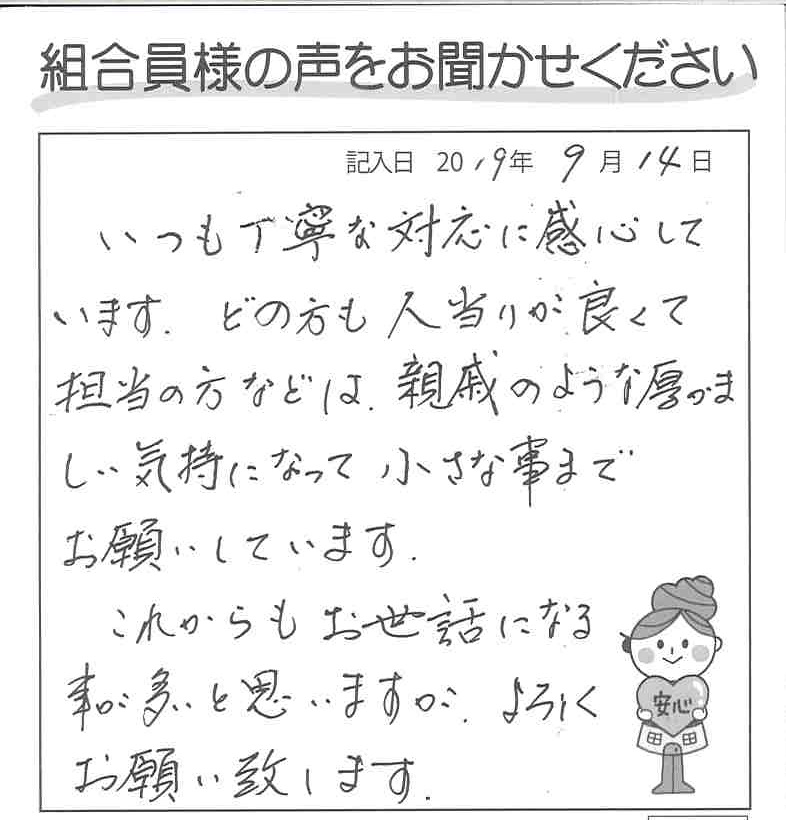 組合員様の声をお聞かせください
記入日 2019年 9月14日
いつも丁寧な対応に感心して
います. どの方も人当りが良くて
担当の方などは. 親戚のような厚かま
しい気持になって小さな事まで
お願いしています.
これからもお世話になる
事が多いと思いますが. よろしく
お願い致します.
安心